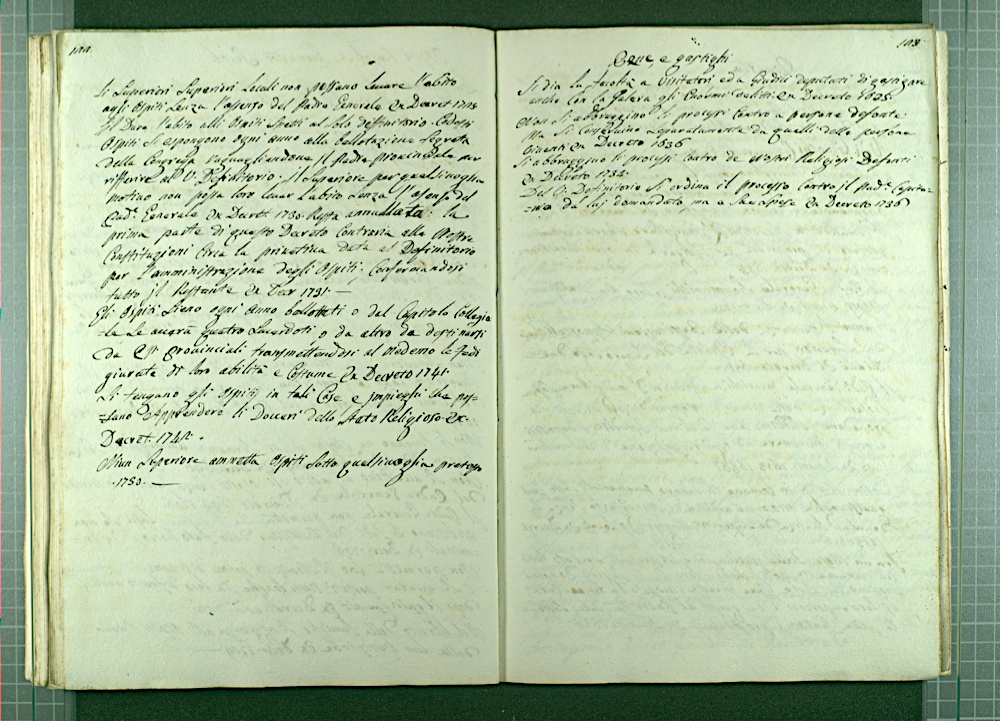 Li Superiori Superiori Locali non possano Levare l'abito
agli Ospiti senza l'assenso del Padre Generale Ex Decret 1708
Il Dare l'abito alli Ospiti Spetti al Solo definitorio
Ospiti si espongono ogni anno alla Ballotazione Segreta
della Congrega ragguagliandone il Padre Provinciale per
rifferire al V. Definitorio. Il Superiore per qualsivoglia
motivo non possa loro levar l'abito senza l'assenso del
Pad.e Generale Ex Decret 1730. Resta annullata la
prima parte di questo Decreto Contraria alle Nostre
Constituzioni Circa la privativa data al Definitorio
per l'amministrazione degli Ospiti. Confermandosi
tutto il Restante Ex Decr 1731.
Gli Ospiti Sieno ogni anno ballottati o dal Capitolo Collegia
le Se avera quatro Sacerdoti, o da altro da destinarsi
da Provinciali transmettendosi al medemo le Fedi
giurate di loro abilità e Costume Ex Decreto 1741.
Si tengano gli Ospiti in tali Case e impieghi che pos-
sano Apprendere li Doveri dello Stato Religioso Ex
Decret. 1742.
Niun Superiore ammetta Ospiti Sotto qualsivoglia pretesto
1750.
103
Pene e gastighi
Si dia la facoltà a Visitatori ed a Giudici deputati di gastigare
anche con la Galera gli Enormi delitti Ex Decreto 1635
Non Si abbraccino li processi Contro a persone defonte
Ma Si Conservino Separatamente da quelli delle persone
Viventi Ex Decreto 1636
Si abbraccino li processi Contro de Nostri Religiosi Defonti
Ex Decreto 1734.
Del V. Definitorio Si ordina il processo Contro il Pad.e
da lui domandato, ma a Sue Spese Ex Decreto 1736